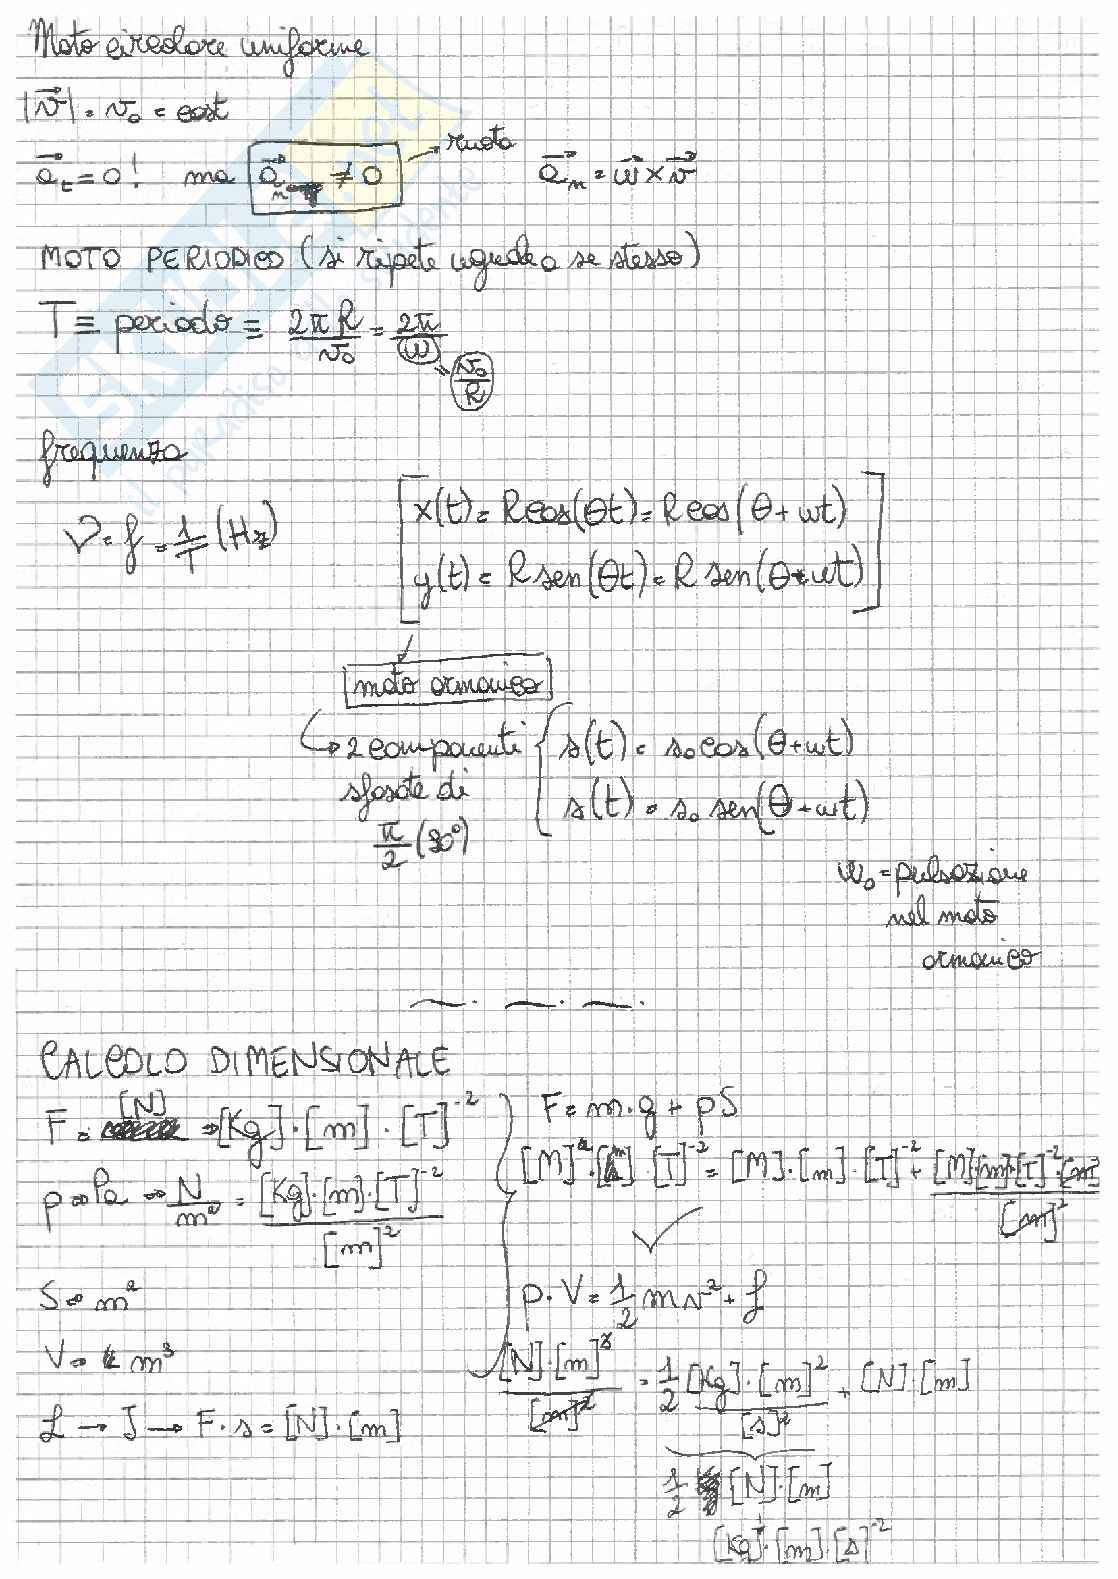 Moto circolare uniforme
|v⃗| = v₀ = cost
a⃗ₜ = 0! ma a⃗ₙ ≠ 0 → ruota a⃗ₙ = ω⃗ × v⃗
MOTO PERIODICO (si ripete uguale a se stesso)
T ≡ periodo ≡ 2πR/v₀ = 2π/ω
= v₀/R
frequenza
ν = f = 1/T (Hz)
x(t) = R cos(θt) = R cos(θ + ωt)
y(t) = R sen(θt) = R sen(θ + ωt)
moto armonico
→ 2 componenti sfasate di π/2 (90°)
s(t) = s₀ cos(θ + ωt)
s(t) = s₀ sen(θ + ωt)
ω₀ = pulsazione
nel moto
armonico
CALCOLO DIMENSIONALE
F = [N] ⇒ [Kg]·[m]·[T]⁻²
p ⇒ Pa ⇒ N/m² = [Kg]·[m]·[T]⁻²/[m]²
S ⇒ m²
V ⇒ m³
L → J → F·s = [N]·[m]
F = m·g + pS
[M]·[m]·[T]⁻² = [M]·[m]·[T]⁻² + [M]·[m]·[T]⁻²·[m]²/[m]²
✓
p·V = 1/2 mv² + L
[N]·[m]³/[m]² = 1/2 [Kg]·[m]²/[s]² + [N]·[m]
1/2 [N]·[m]
[Kg]·[m]·[s]⁻²
SKUOLA.net
il paradiso dello studente